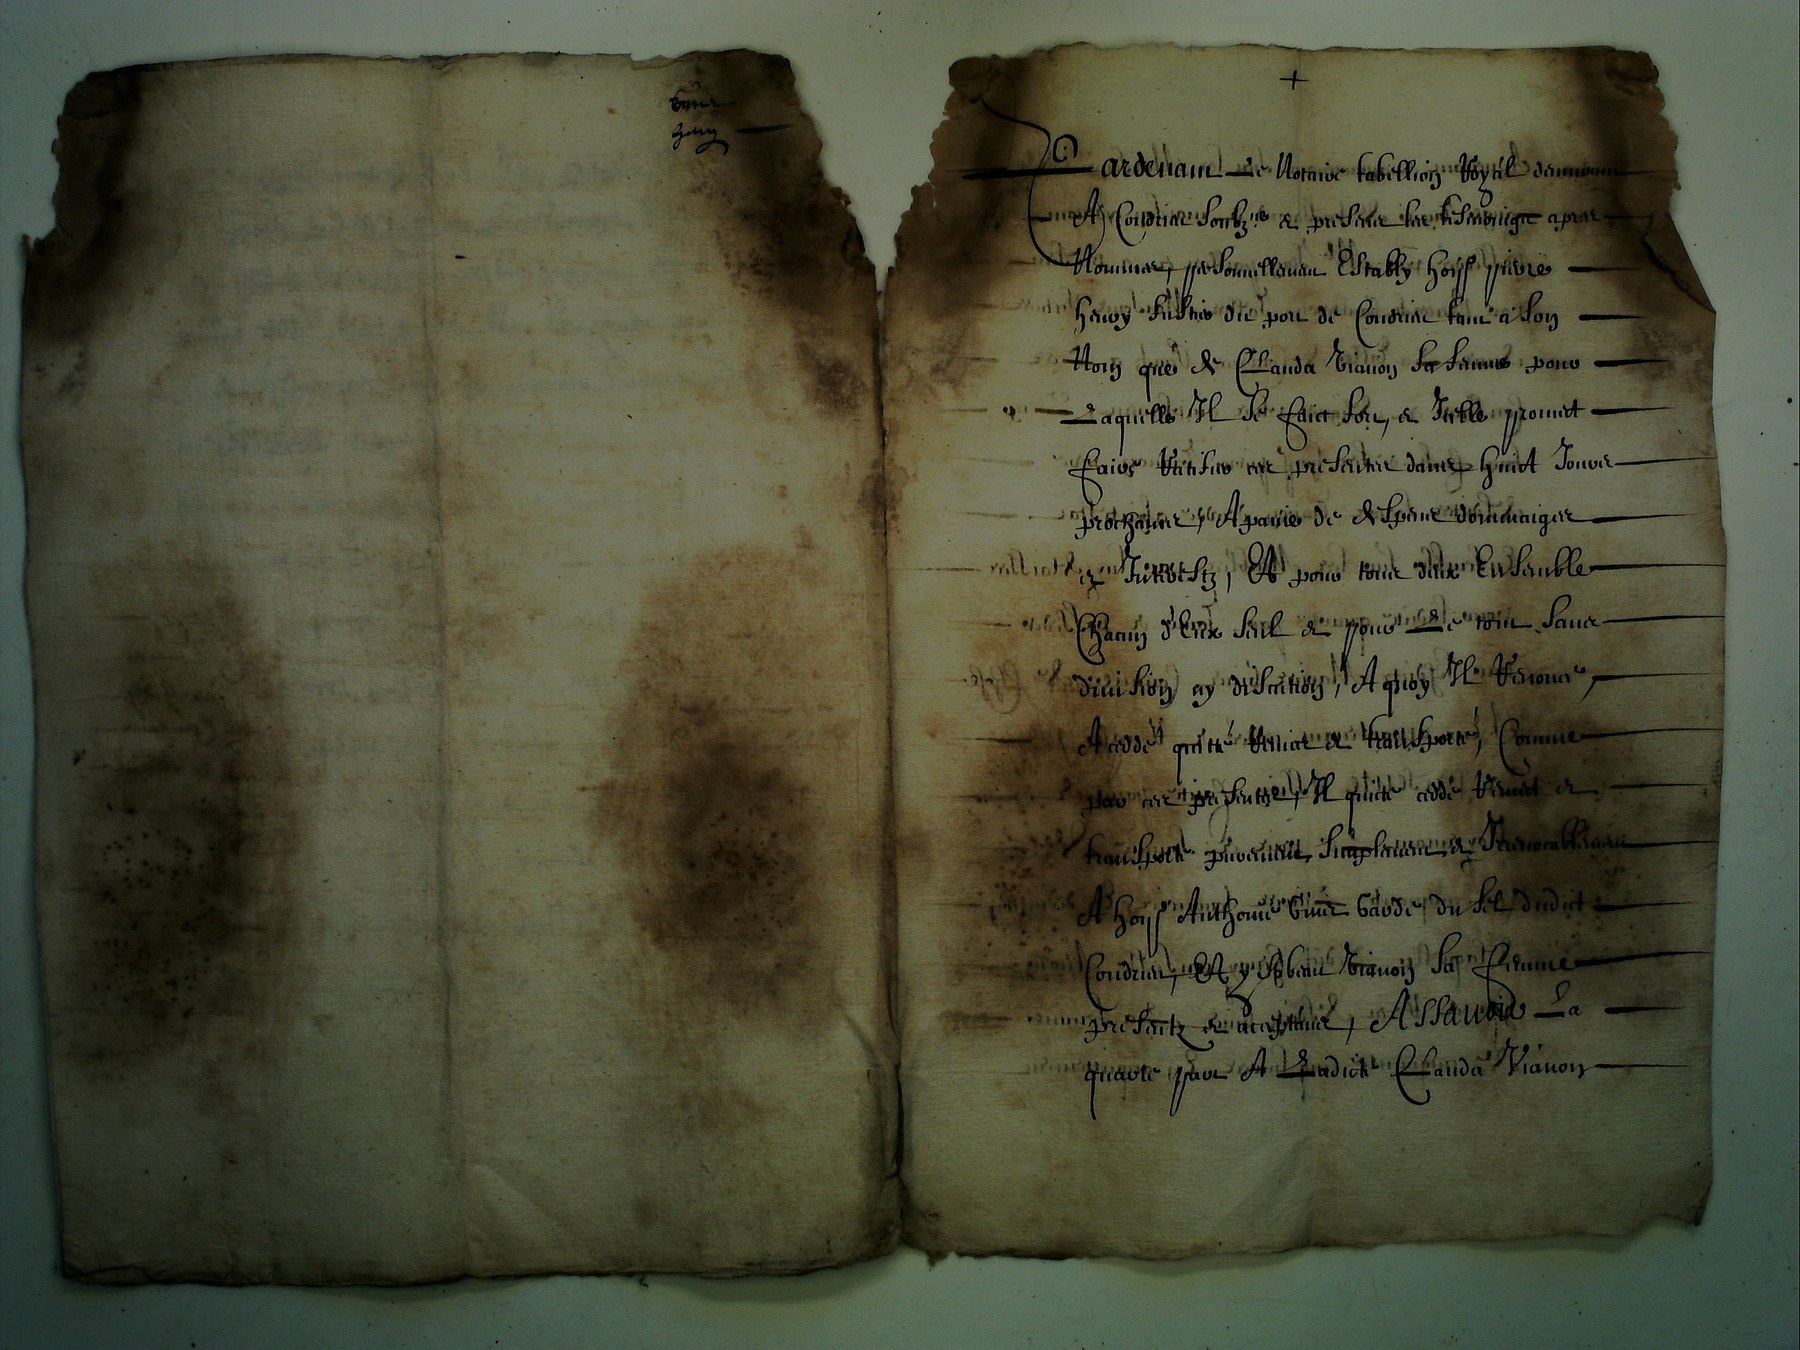 +
Pardeuant Le Notaire tabellion Royal demeurant
A Condrieu soubzne & presence les tesmoingtz apres
Nommes, personnellement Estably honss pierre
hevoy du port de Condrieu tant a son
Nom que de Clauda Vianon sa femme pour
Laquelle Il se faict fort, & Icelle promet
faire Ratiffier ces presentes dans huict Jours
prochains, A payne de despens dommaiges
& Interestz, Et pour tous deux Ensemble
Chacun d'Eux seul & pour Le tout sans
diuision ny discution, A quoy Il Renonce,
A cedde quitte Remis & transporté, Comme
par ces presentes, Il quicte cedde Remet &
transporte purement, simplement, & Irreuocablement
A honss Anthoine garde du sel dudict
Condrieu, Et ysabeau Vianon sa femme
presentz & acceptans, Assauoir La
quarte part A Ladicte Clauda Vianon